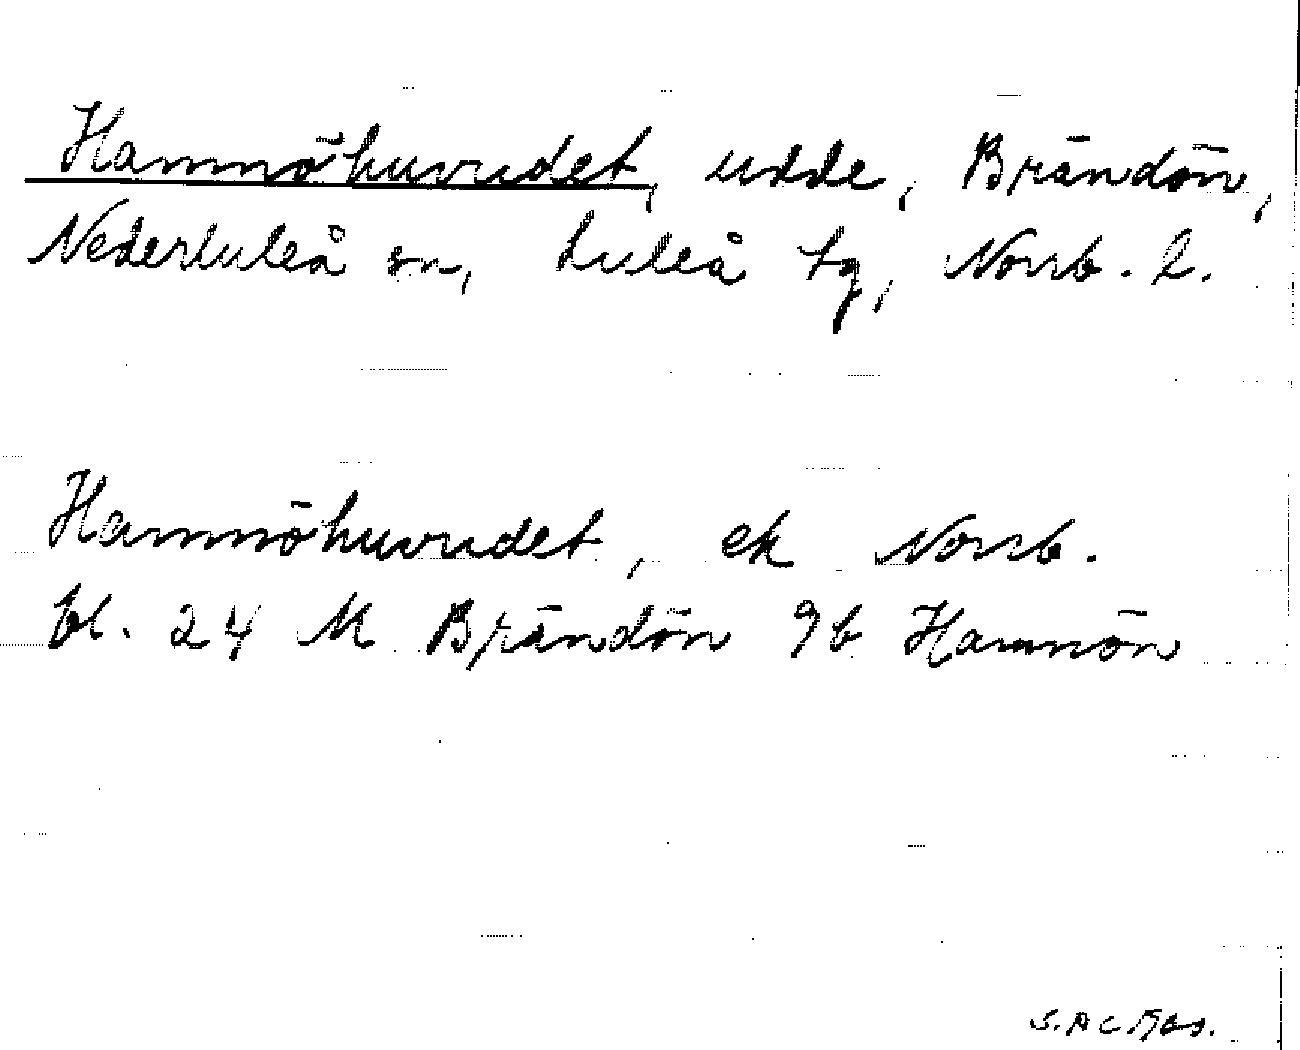 Hamnöhuvudet, udde, Brändön,
Nederluleå sn, Luleå tg, Norrb. l.
Hamnöhuvudet, ek Norrb.
bl. 24 M Brändön 9b Hamnön